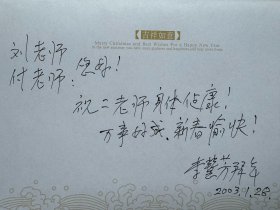 吉祥如意
Merry Christmas and Best Wishes For a Happy New Year
刘老师
付老师：您好！
祝二老师身体健康！
万事好成、新春愉快！
李慧芳拜年
2003.1.28.